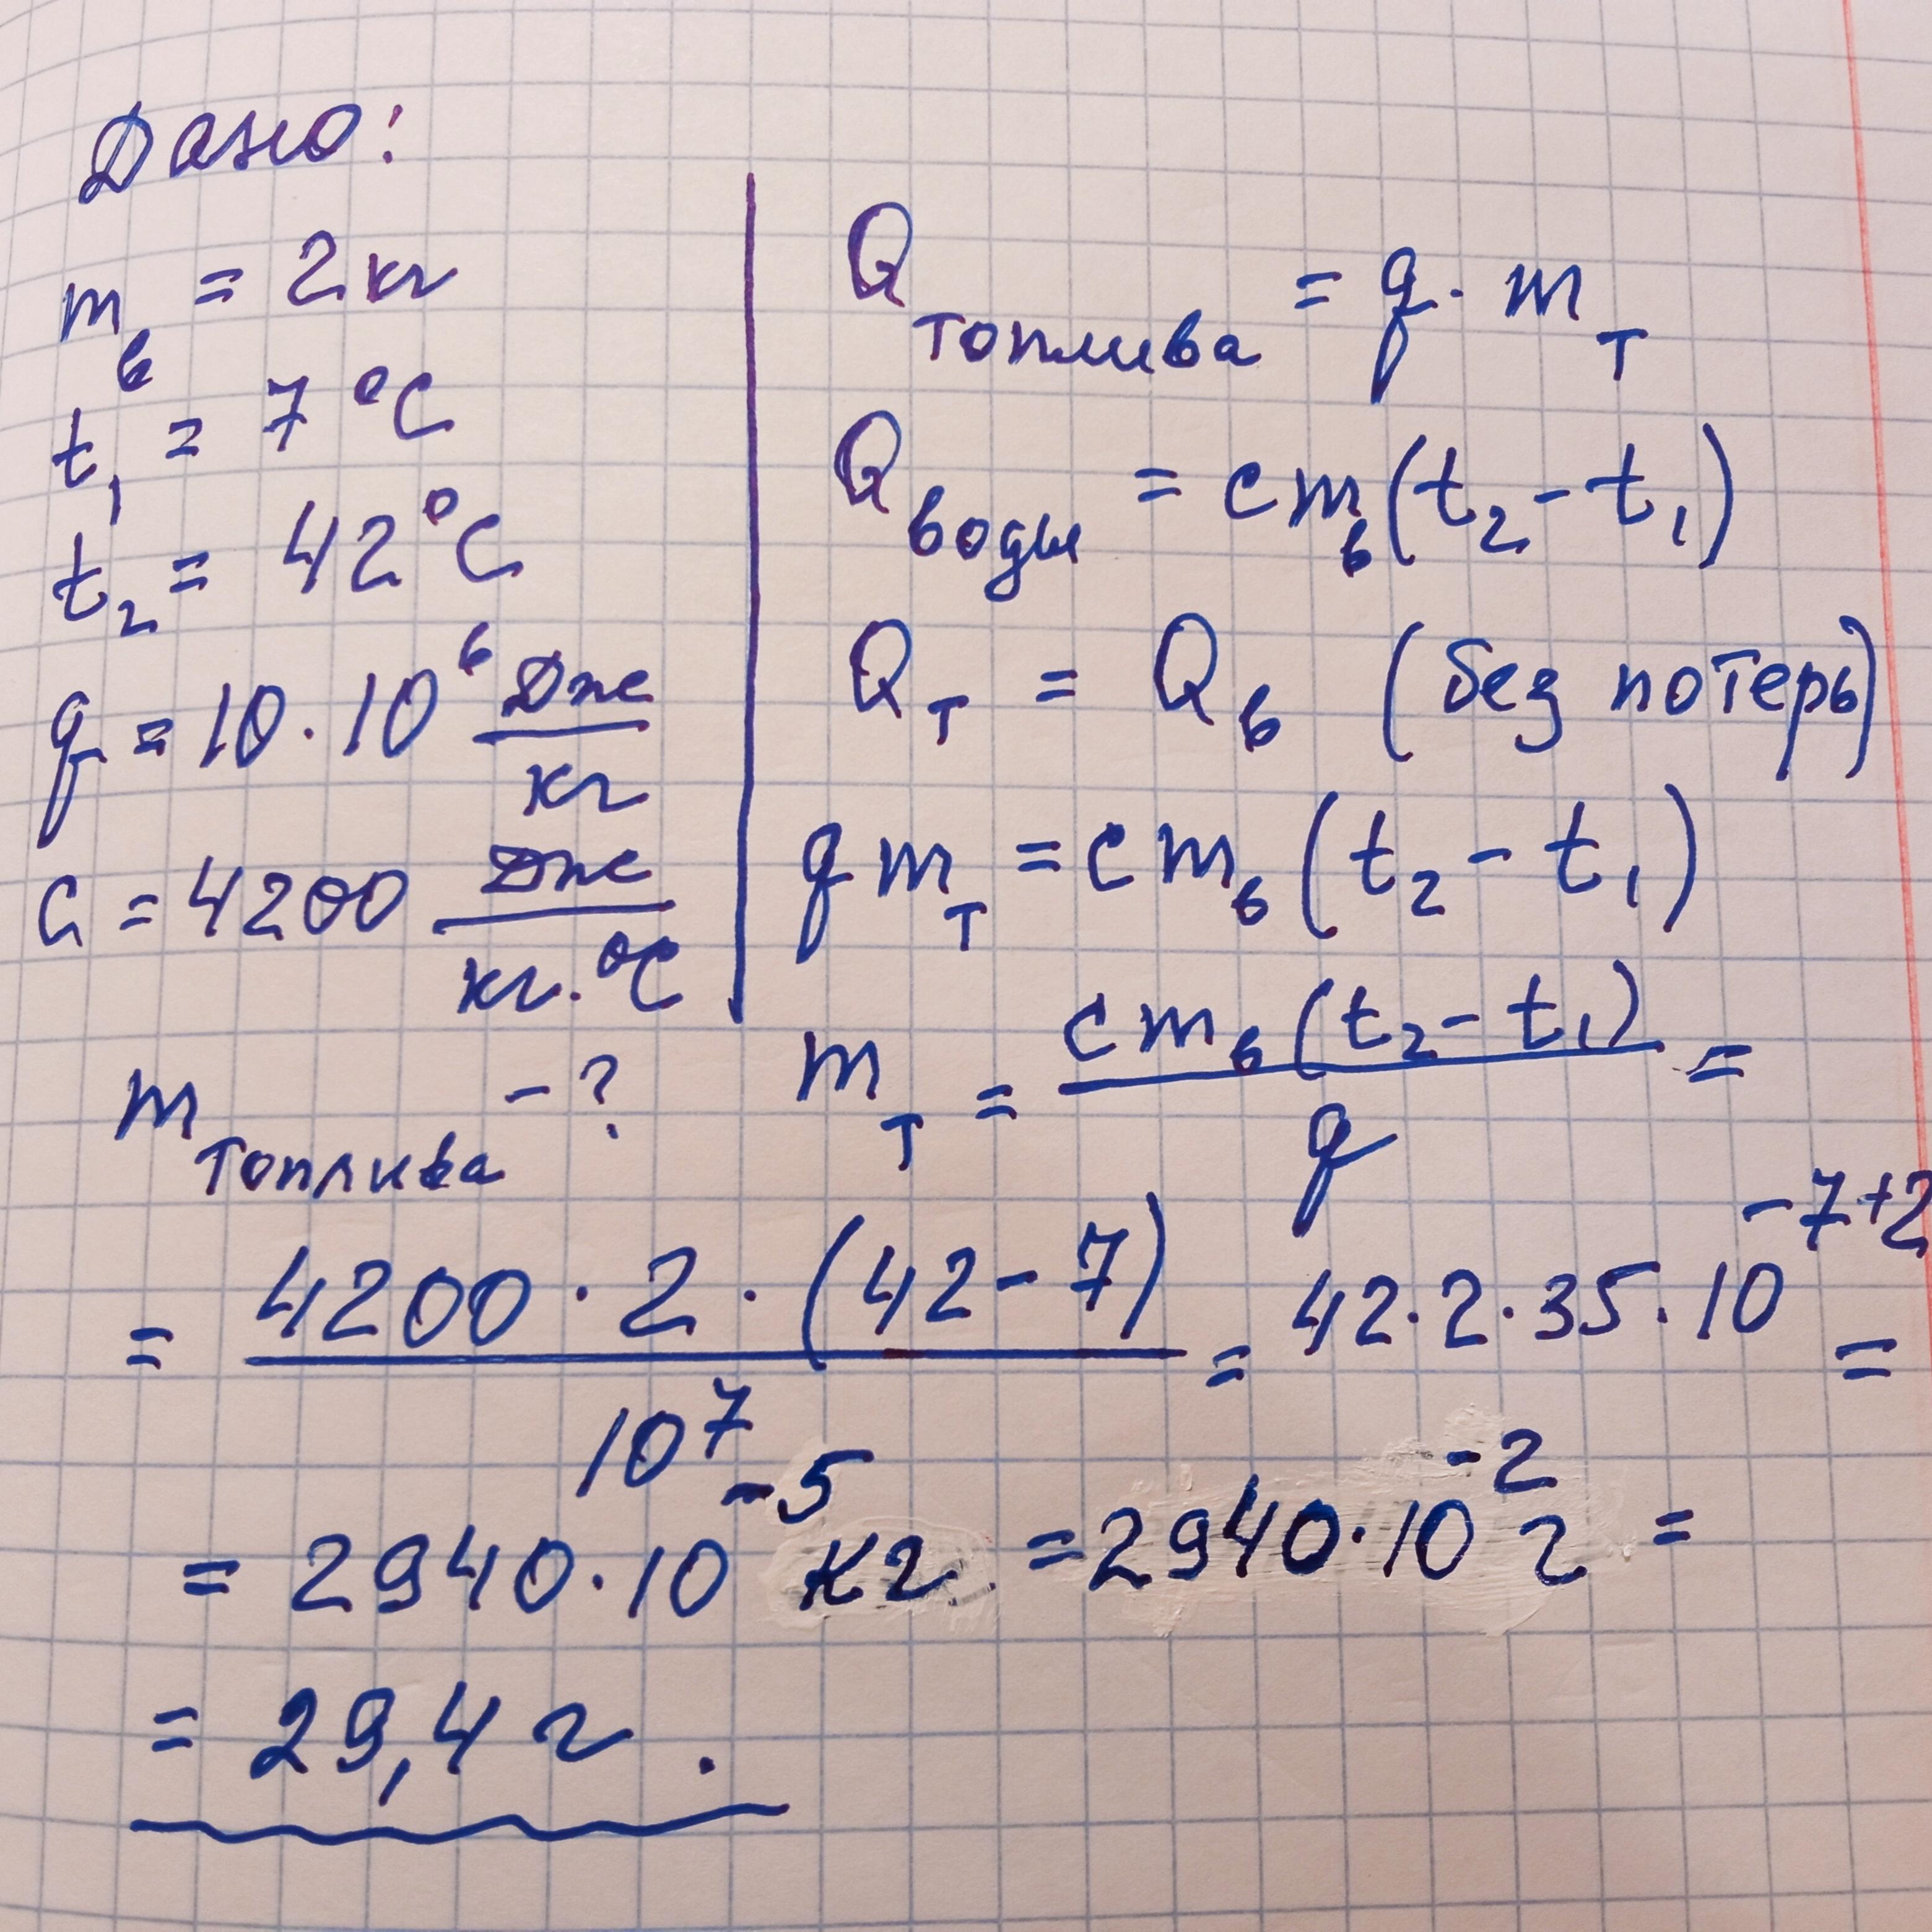 Дано:
m_в = 2 кг
t₁ = 7 °C
t₂ = 42 °C
q = 10 · 10⁶ Дж/кг
c = 4200 Дж/(кг · °C)
m_топлива - ?
Q_топлива = q · m_т
Q_воды = c m_в (t₂ - t₁)
Q_т = Q_в (без потерь)
q m_т = c m_в (t₂ - t₁)
m_т = c m_в (t₂ - t₁) / q =
= 4200 · 2 · (42 - 7) / 10⁷ = 42 · 2 · 35 · 10⁻⁷⁺² =
= 2940 · 10⁻⁵ кг = 2940 · 10⁻² г =
= 29,4 г .